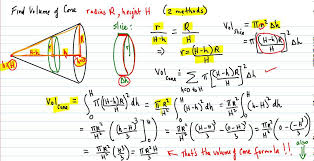 Find Volume of Cone radius R, height H (2 methods)
slice:
H-h
r
R
h
H
r/(H-h) = R/H
⇒ r = (H-h)R/H
Vol slice = πr² Δh
= π[(H-h)R/H]² Δh
Vol cone = Σ h=0 to H π[(H-h)R/H]² Δh
Vol cone = ∫₀ᴴ π[(H-h)R/H]² dh = πR²/H² ∫₀ᴴ (H-h)² dh = πR²/H² ∫₀ᴴ (h-H)² dh
= πR²/H² [(h-H)³/3]₀ᴴ = πR²/H² [(H-H)³/3 - (0-H)³/3] = πR²/H² (0-(-H³)/3)
= πR²/H² (H³/3) = πR²H/3 That's the volume of cone formula!!
also